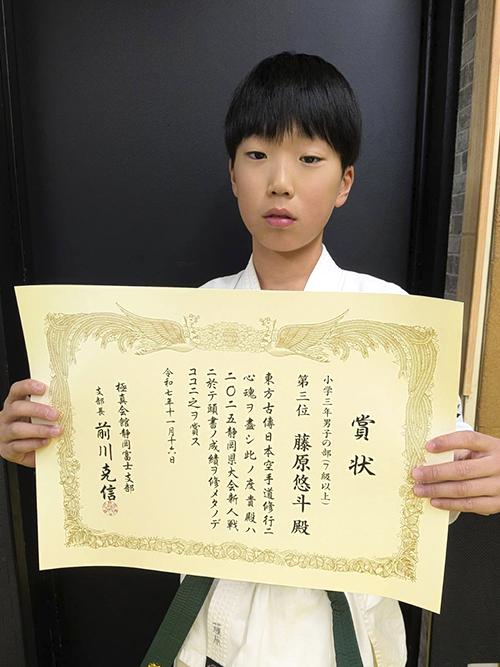 賞状
小学三年男子の部(7級以上)
第三位 藤原悠斗殿
東方古傳日本空手道修行ニ
心魂ヲ盡シ此ノ度貴殿ハ
二〇二五静岡県大会新人戦
ニ於テ頭書ノ成績ヲ修メタノデ
ココニ之ヲ賞ス
令和七年十一月十六日
極真会館静岡富士支部
支部長 前川克信